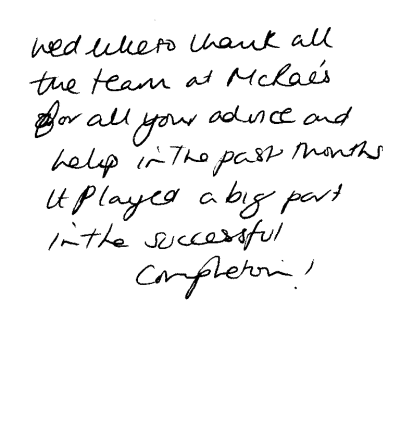 wed like to thank all
the team at McRae's
for all your advice and
help in the past months
It played a big part
in the successful
completion!